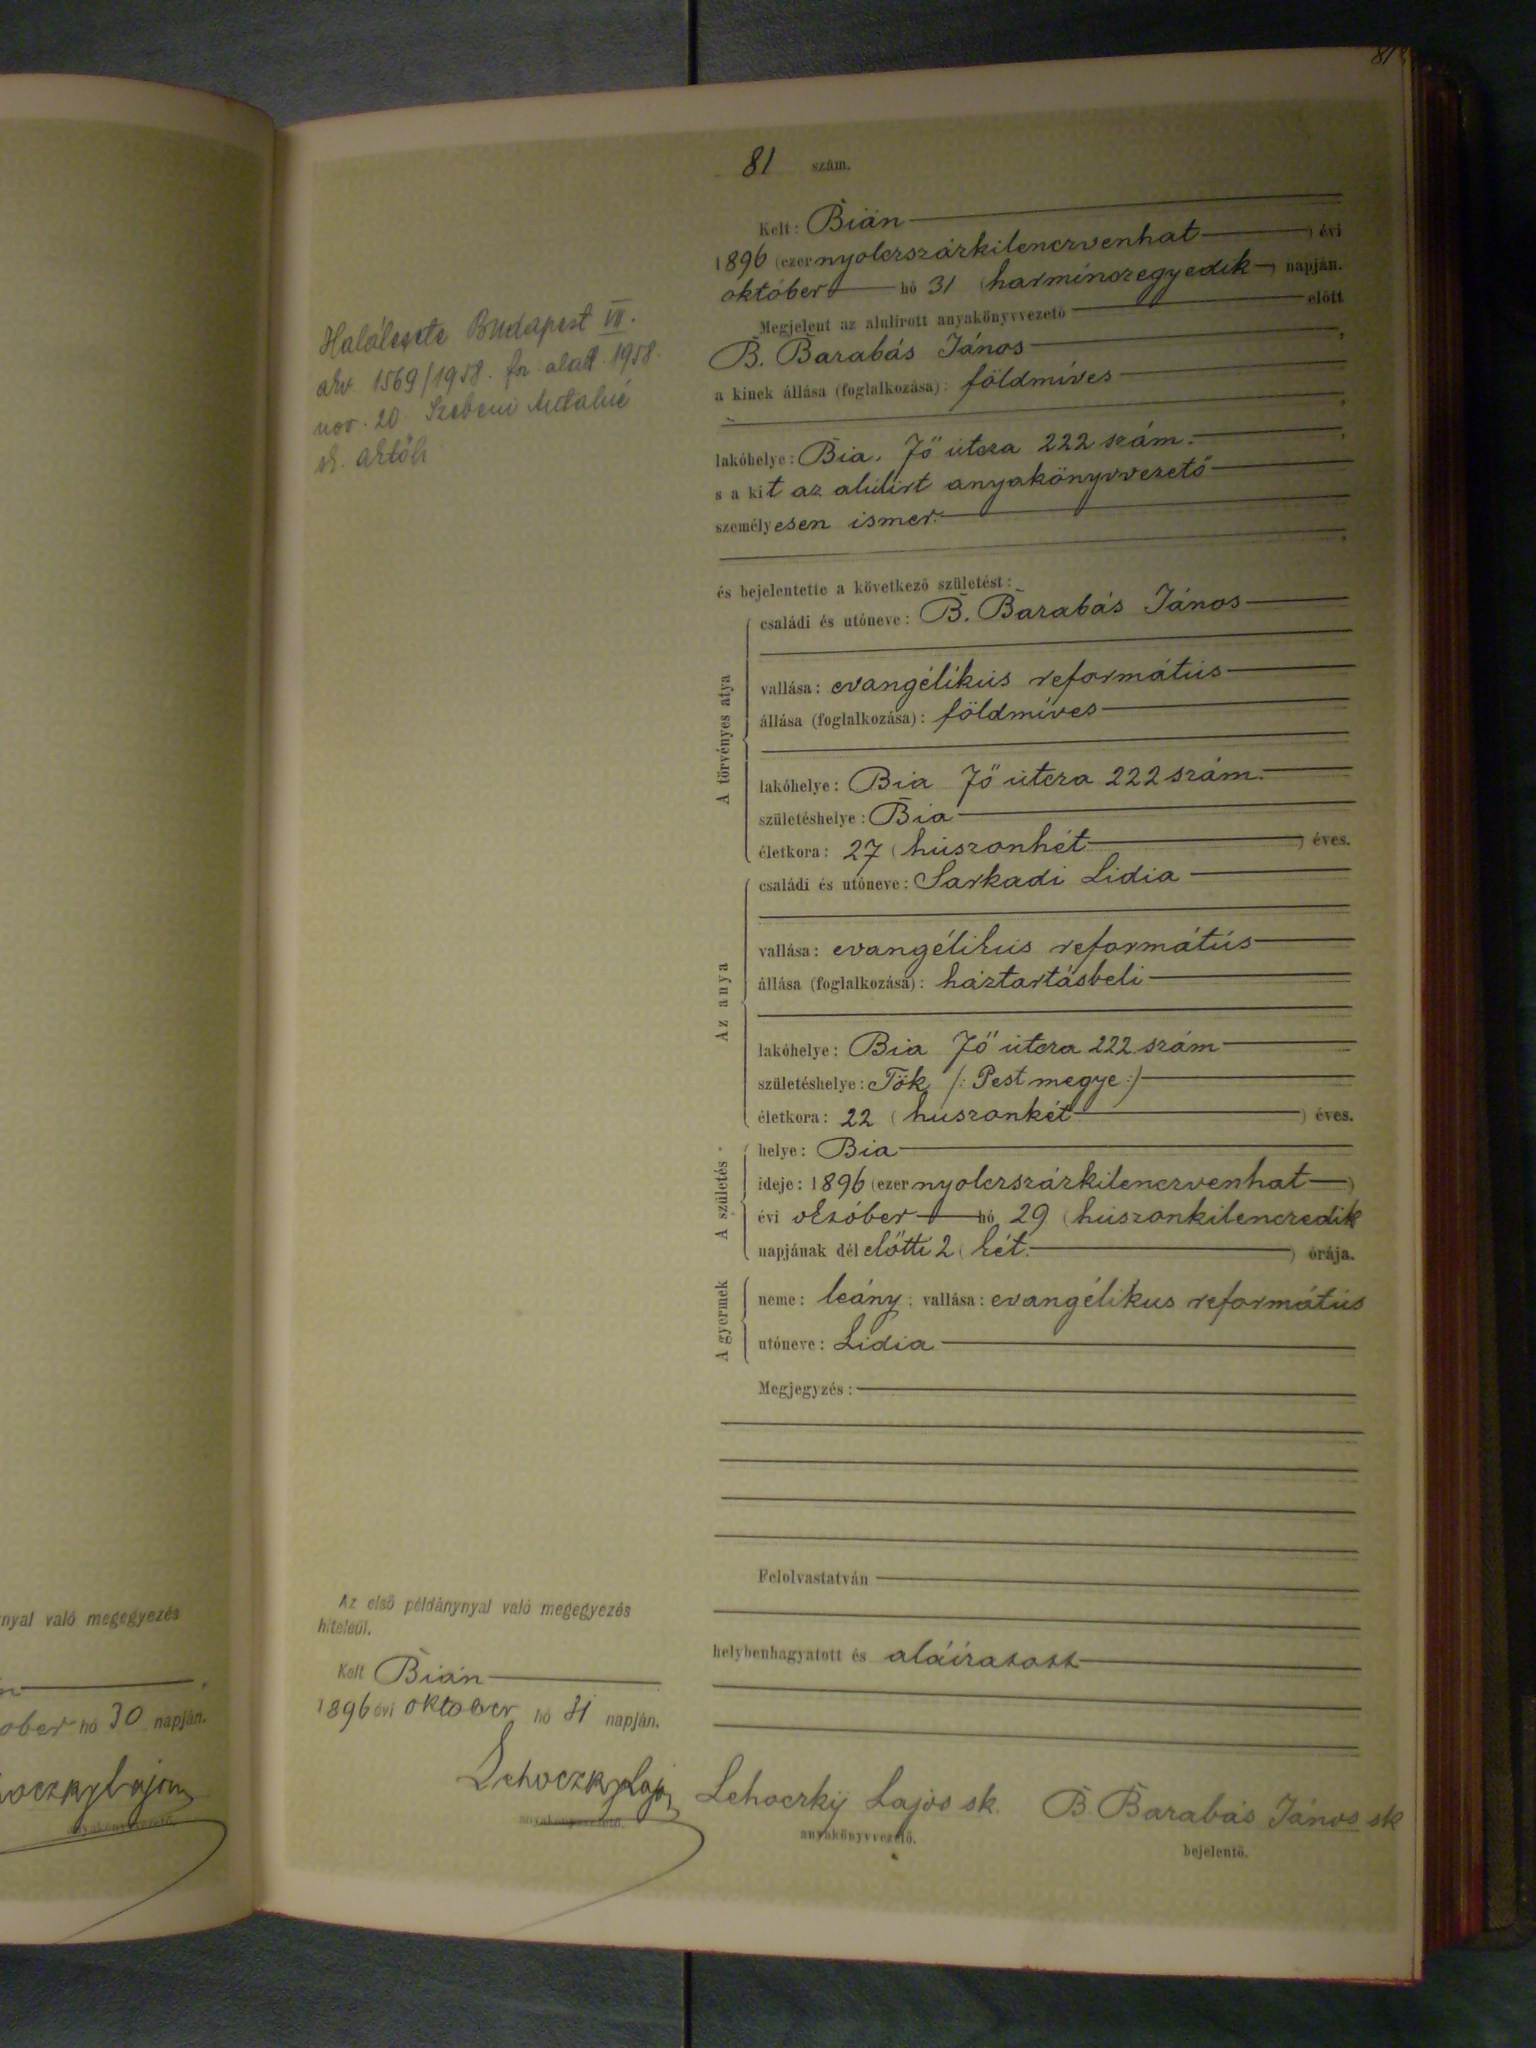 81
81 szám.
Kelt: Bián
1896 (ezer nyolczszázkilenczvenhat) évi
október hó 31 (harminczegyedik) napján.
Megjelent az alulirott anyakönyvvezető előtt
B. Barabás János,
a kinek állása (foglalkozása): földmíves
lakóhelye: Bia. Fő útcza 222 szám.
s a kit az alúlirt anyakönyvvezető
személyesen ismer.
és bejelentette a következő születést:
A törvényes atya
családi és utóneve: B. Barabás János
vallása: evangélikús reformátús
állása (foglalkozása): földmíves
lakóhelye: Bia Fő útcza 222 szám.
születéshelye: Bia
életkora: 27 (húszonhét) éves.
Az anya
családi és utóneve: Sarkadi Lidia
vallása: evangélikus reformátús
állása (foglalkozása): háztartásbeli
lakóhelye: Bia Fő útcza 222 szám
születéshelye: Tök /: Pest megye :/
életkora: 22 (húszonkét) éves.
A születés
helye: Bia
ideje: 1896 (ezer nyolczszázkilenczvenhat)
évi október hó 29 (húszonkilenczedik
napjának dél előtti 2 (két) órája.
A gyermek
neme: leány; vallása: evangélikus reformátús
utóneve: Lidia
Megjegyzés:
Felolvastatván
helybenhagyatott és aláíratott
Lehoczky Lajos sk. B. Barabás János sk
anyakönyvvezető. bejelentő.
Halálesete Budapest VII.
akv 1569/1958. fsz. alatt 1958.
nov. 20 Szebeni Antalné
Az első példánynyal való megegyezés
hiteléül.
Kelt Bián
1896 évi oktober hó 31 napján.
Lehoczky Lajos
anyakönyvvezető.
nyal való megegyezés
ober hó 30 napján.
oczky Lajos
anyakönyvvezető.